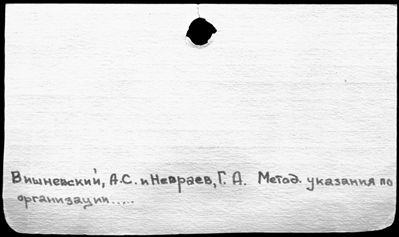 Вишневский, А.С. и Невраев, Г. А. Метод. указания по
организации.....